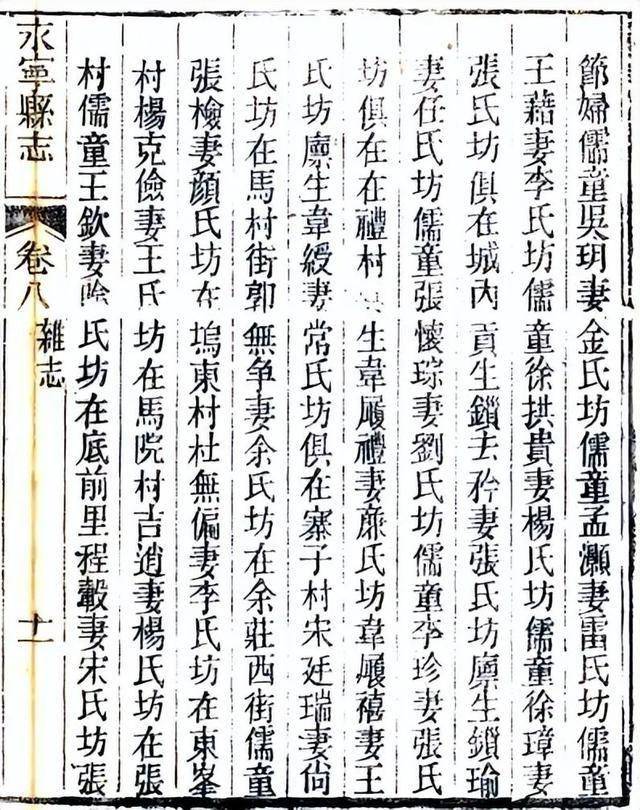 節婦儒童吳玥妻金氏坊儒童孟灝妻雷氏坊儒童
王藉妻李氏坊儒童徐拱貴妻楊氏坊儒童徐璋妻
張氏坊俱在城內貢生鎖去矜妻張氏坊廩生鎖瑜
妻任氏坊儒童張懷琮妻劉氏坊儒童李珍妻張氏
坊俱在在禮村生韋履禮妻氏坊韋履禧妻王
氏坊廪生韋綬妻常氏坊俱在寨子村宋廷瑞妻尙
氏坊在馬村街郭無争妻余氏坊在余莊西街儒童
張檢妻顔氏坊在塢東村杜無偏妻李氏坊在東峯
村楊克儉妻王氏坊在馬院村吉逍妻楊氏坊在張
村儒童王欽妻氏坊在底前里程轂妻宋氏坊張
永寧縣志
卷八
雜志
十一